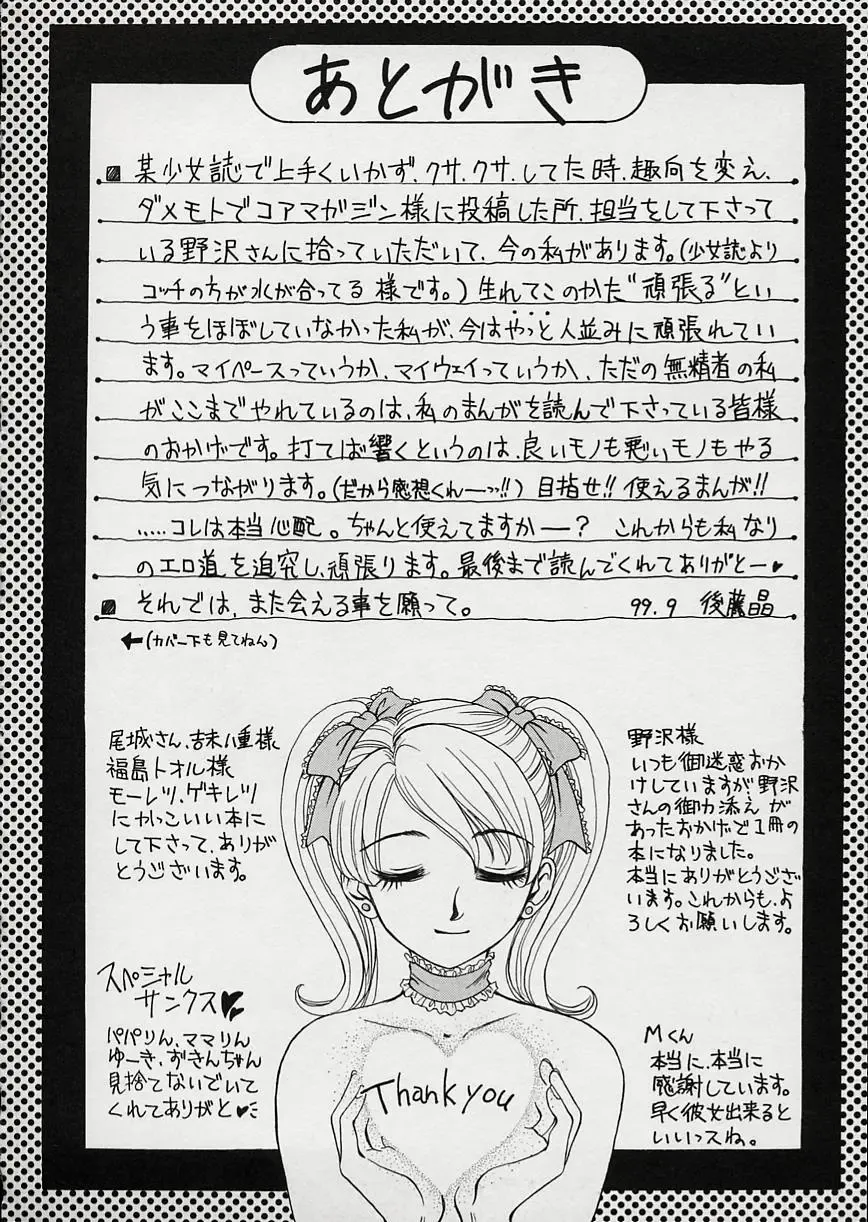 あとがき
■ 某少女誌で上手くいかず、クサ、クサ、してた時、趣向を変え、
ダメモトでコアマガジン様に投稿した所、担当をして下さって
いる野沢さんに拾っていただいて、今の私があります。(少女誌より
コッチの方が水が合ってる様です。)生れてこのかた“頑張る”とい
う事をほぼしていなかった私が、今はやっと人並みに頑張れてい
ます。マイペースっていうか、マイウェイっていうか、ただの無精者の私
がここまでやれているのは、私のまんがを読んで下さっている皆様
のおかげです。打てば響くというのは、良いモノも悪いモノもやる
気につながります。(だから感想くれーっ!!)目指せ!!使えるまんが!!
……コレは本当心配。ちゃんと使えてますかー?これからも私なり
のエロ道を追究し、頑張ります。最後まで読んでくれてありがとー♥
■ それでは、また会える事を願って。 99.9 後藤晶
←(カバー下も見てねん)
尾城さん、吉未八重様
福島トオル様
モーレツ、ゲキレツ
にかっこいい本に
して下さって、ありが
とうございます。
野沢様
いつも御迷惑おか
けしていますが野沢
さんの御力添えが
あったおかげで1冊の
本になりました。
本当にありがとうござい
います。これからも、よ
ろしくお願いします。
スペシャル
サンクス♥
パパりん、ママりん
ゆーき、おきんちゃん
見捨てないでいて
くれてありがと♥
Mくん
本当に、本当に
感謝しています。
早く彼女出来ると
いいっスね。
Thank you